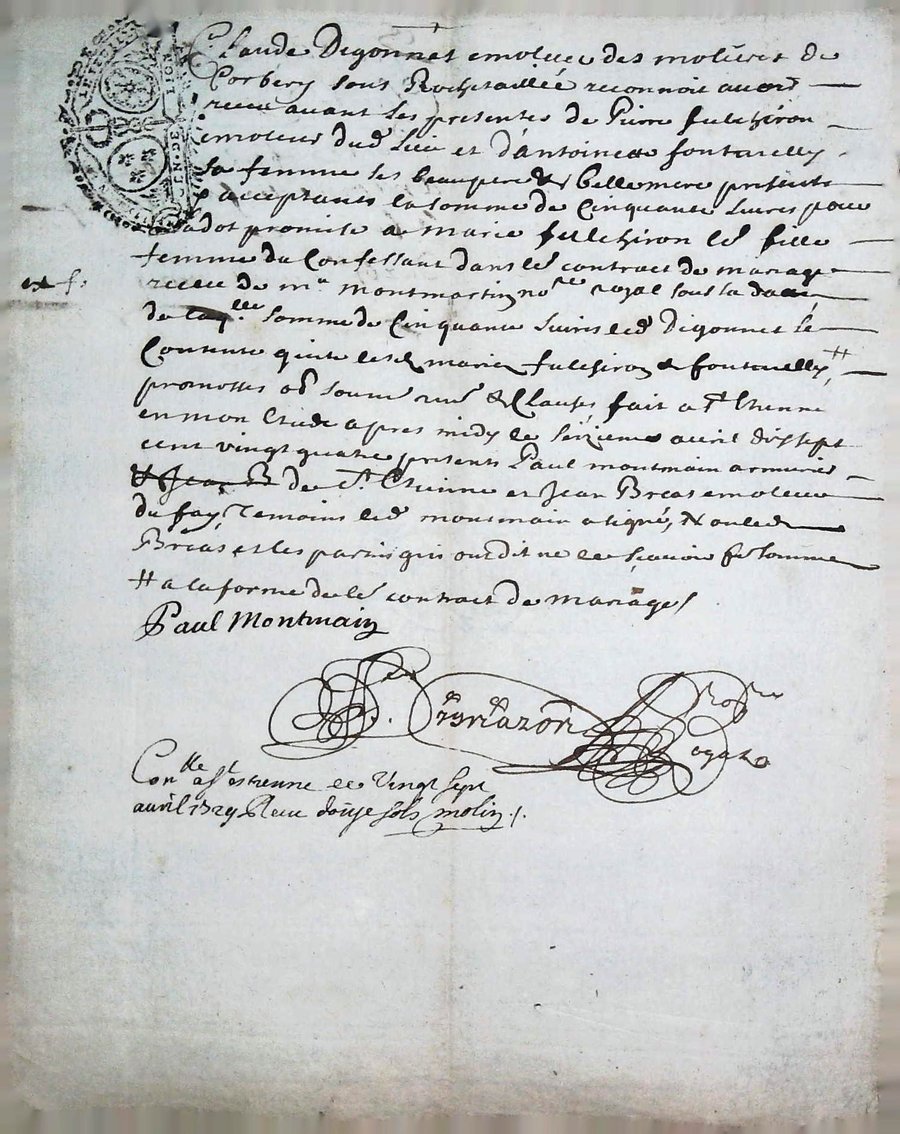 Claude Digonnet emoleur des molieres de
Corbery sous Rochetaillée reconnoit avoir
receu avant les presentes de Pierre fulchiron
emoleur dud lieu et d'antoinette fontvielly
sa femme ses beaupere & bellemere presents
& acceptants la somme de Cinquante livres pour
ladot promise a marie fulchiron led fille
femme du Confessant dans led contract de mariage
receu de me montmartin nore royal sous sa datte
de laqlle somme de Cinquante livres led Digonnet se
Contente quitte lesd mariés fulchiron & fontvielly #
promettes ob soum ren & Clauses, fait a St Etienne
en mon Etude apres midy le seizieme avril dix sept
cent vingt quatre presents Paul montmain armurier
de St Etienne et Jean Breas emoleur
du fay, temoins led montmain a signé, & non led
Breas et les parties qui ont dit ne le sçavoir de somme
# a la forme dud contract de mariage /
Paul Montmain
ex f.
Royal
Conlle a St estienne le Vingt sept
avril 1724 Receu douze sols molin